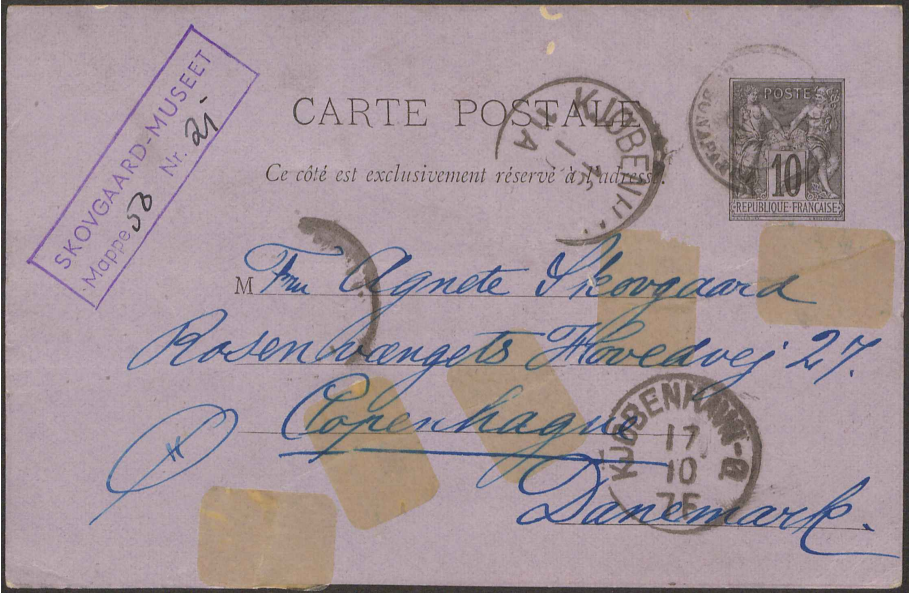 SKOVGAARD-MUSEET
Mappe 53 Nr. 21
CARTE POSTALE
Ce côté est exclusivement réservé à l'adresse.
POSTE
10
REPUBLIQUE FRANÇAISE
KJØBENH
M Fru Agnete Skovgaard
Rosenvængets Hovedvej 27.
Copenhague
Danemark.
KJØBENHAVN
17
10